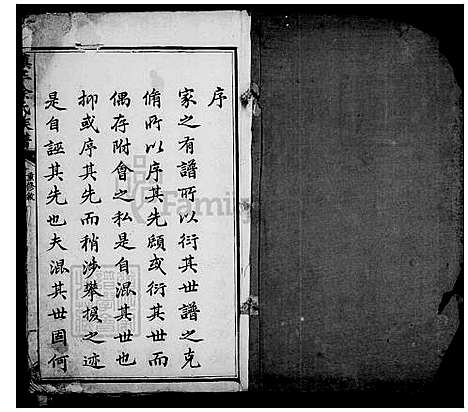 序
家之有譜所以衍其世譜之克
脩所以序其先顧或衍其世而
偶存附會之私是自混其世也
抑或序其先而稍涉攀援之迹
是自誣其先也夫混其世固何
重修敘